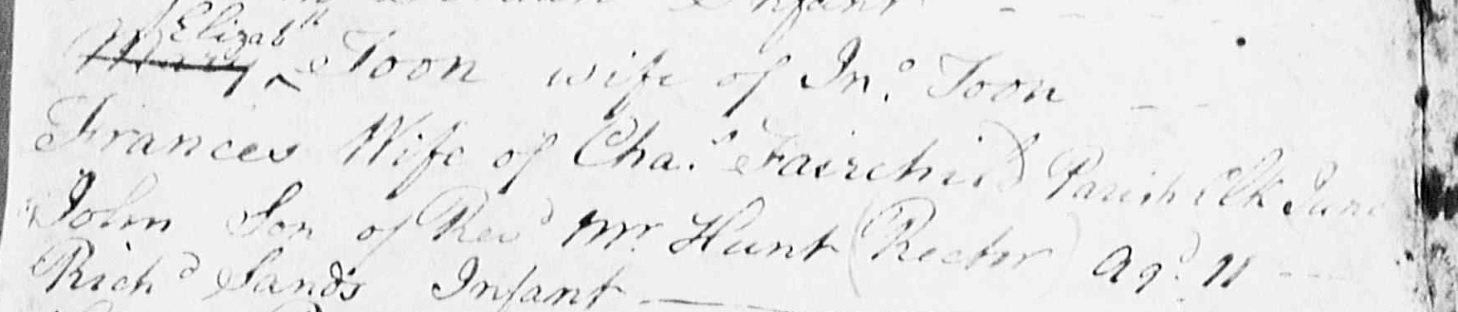 Infant - - -
Elizabth
Mary ^ Toon wife of Jno. Toon - -
Frances Wife of Chas. Fairchild Parish Clk June
John Son of Revd Mr Hunt (Rector) Agd. 11 - -
Richd Sands Infant —